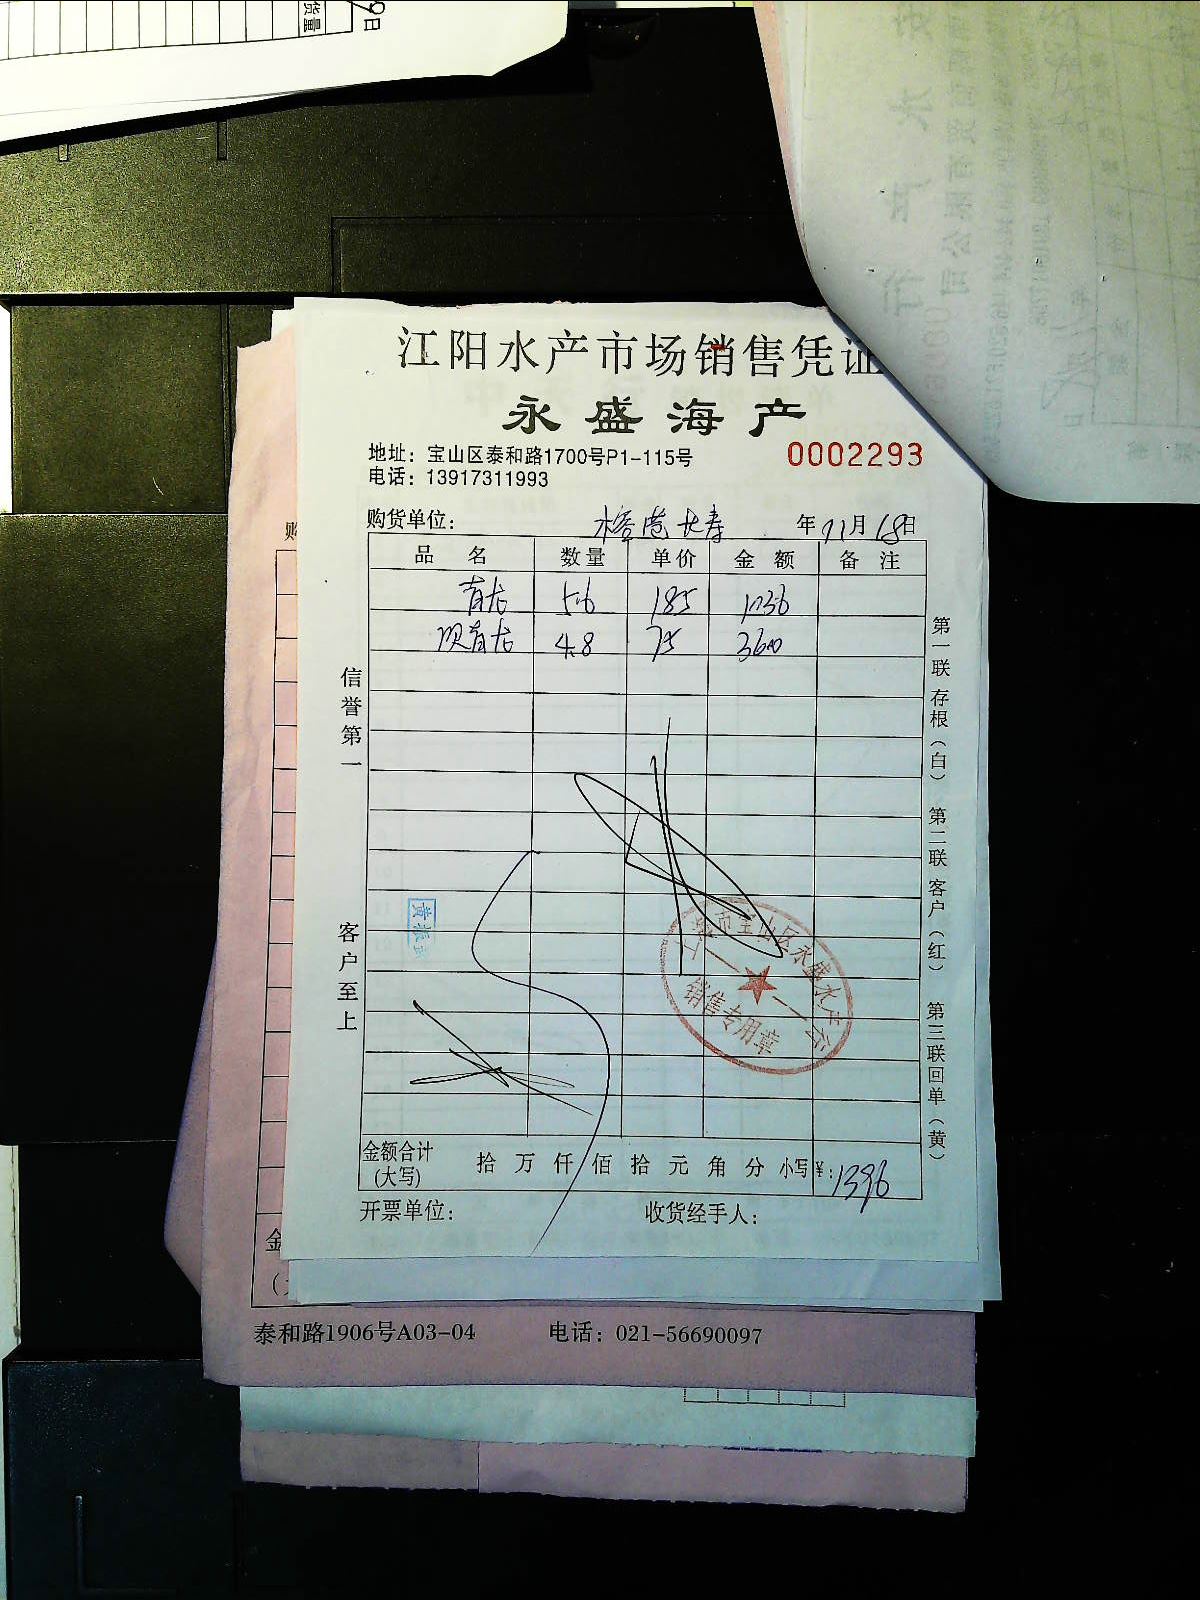 货量
9日
江阳水产市场销售凭证
永盛海产
地址：宝山区泰和路1700号P1-115号
0002293
电话：13917311993
购货单位： 长寿 年11月18日
品名 数量 单价 金额 备注
青龙 5.6 185 1036
青龙 4.8 75 360
信誉第一
客户至上
第一联存根（白） 第二联客户（红） 第三联回单（黄）
市宝山区永盛水产
销售专用章
金额合计(大写) 拾 万 仟 佰 拾 元 角 分 小写¥: 1396
开票单位： 收货经手人：
购
金
泰和路1906号A03-04 电话：021-56690097